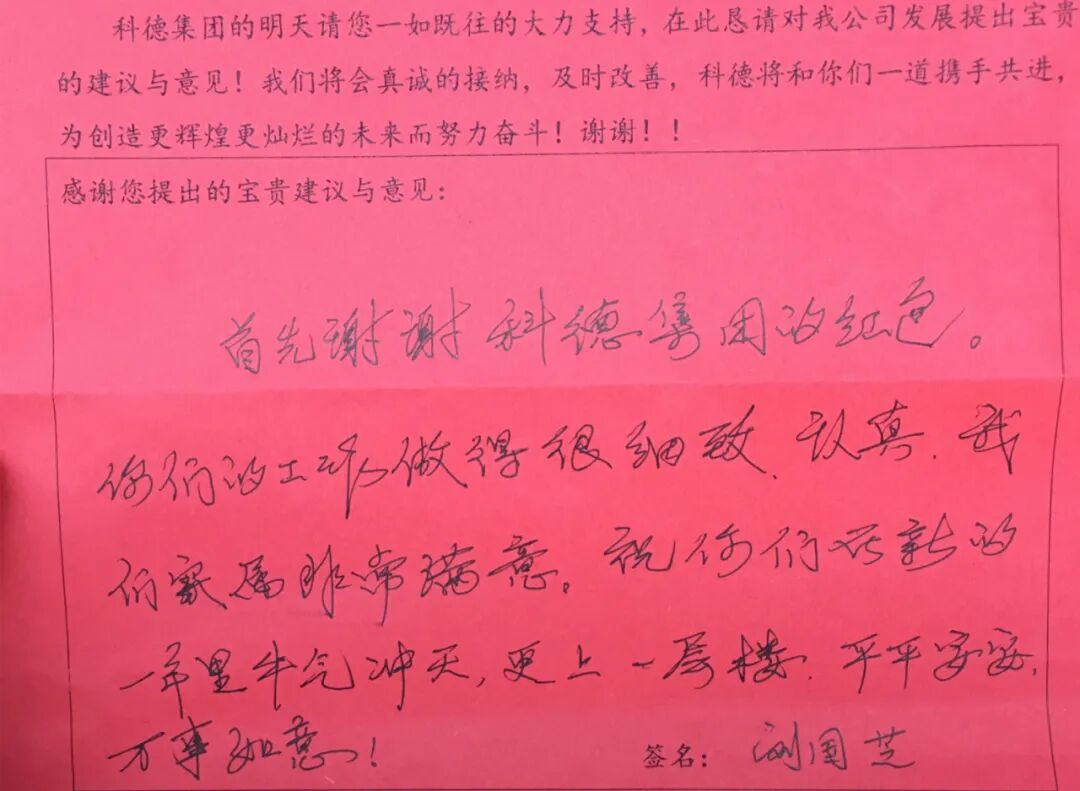 科德集团的明天请您一如既往的大力支持，在此恳请对我公司发展提出宝贵
的建议与意见！我们将会真诚的接纳，及时改善，科德将和你们一道携手共进，
为创造更辉煌更灿烂的未来而努力奋斗！谢谢！！
感谢您提出的宝贵建议与意见：
首先谢谢科德集团的红包。
你们的工作做得很细致、认真、我
们家属非常满意。祝你们在新的
一年里牛气冲天，更上一层楼、平平安安，
万事如意！
签名：刘国芝